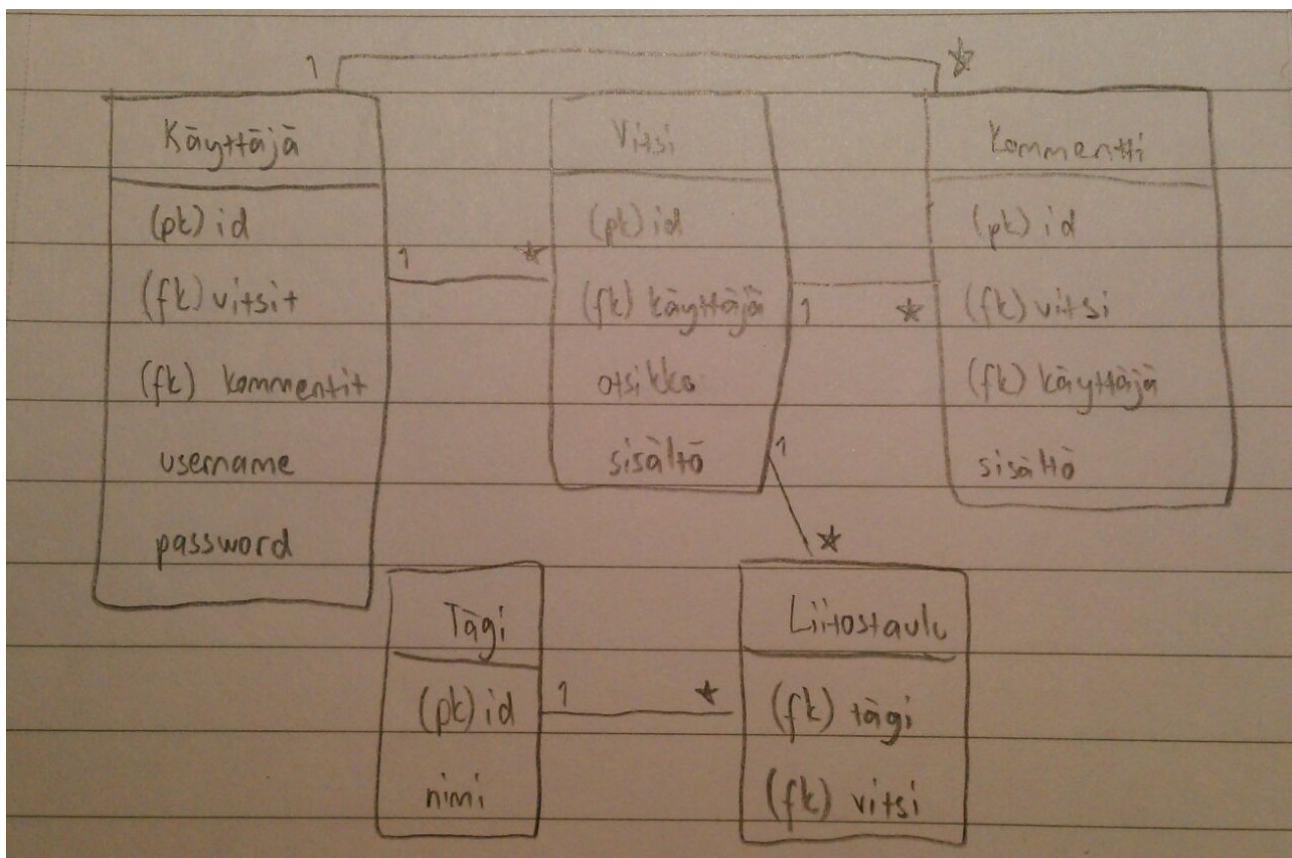 1 *
Käyttäjä
(pk) id
(fk) vitsit
(fk) kommentit
username
password
1 *
Vitsi
(pk) id
(fk) käyttäjä
otsikko
sisältö
1 *
Kommentti
(pk) id
(fk) vitsi
(fk) käyttäjä
sisältö
1
*
Tägi
(pk) id
nimi
1 *
Liitostaulu
(fk) tägi
(fk) vitsi